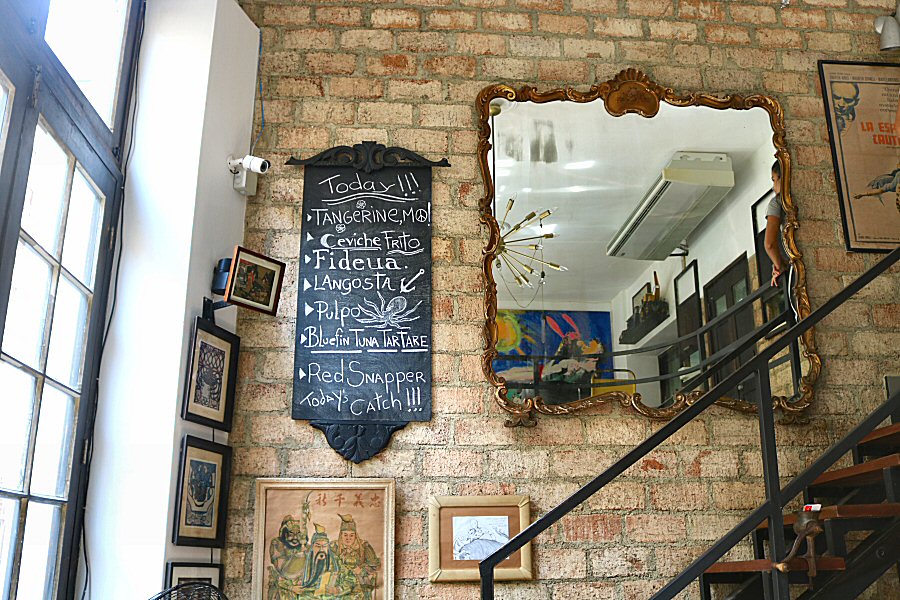 Today!!!
TANGERINE, MO!
Ceviche FRITO
Fideua.
LANGOSTA
Pulpo
Bluefin Tuna TarTare
Red Snapper
Today's Catch!!!
LA ES
CAUT